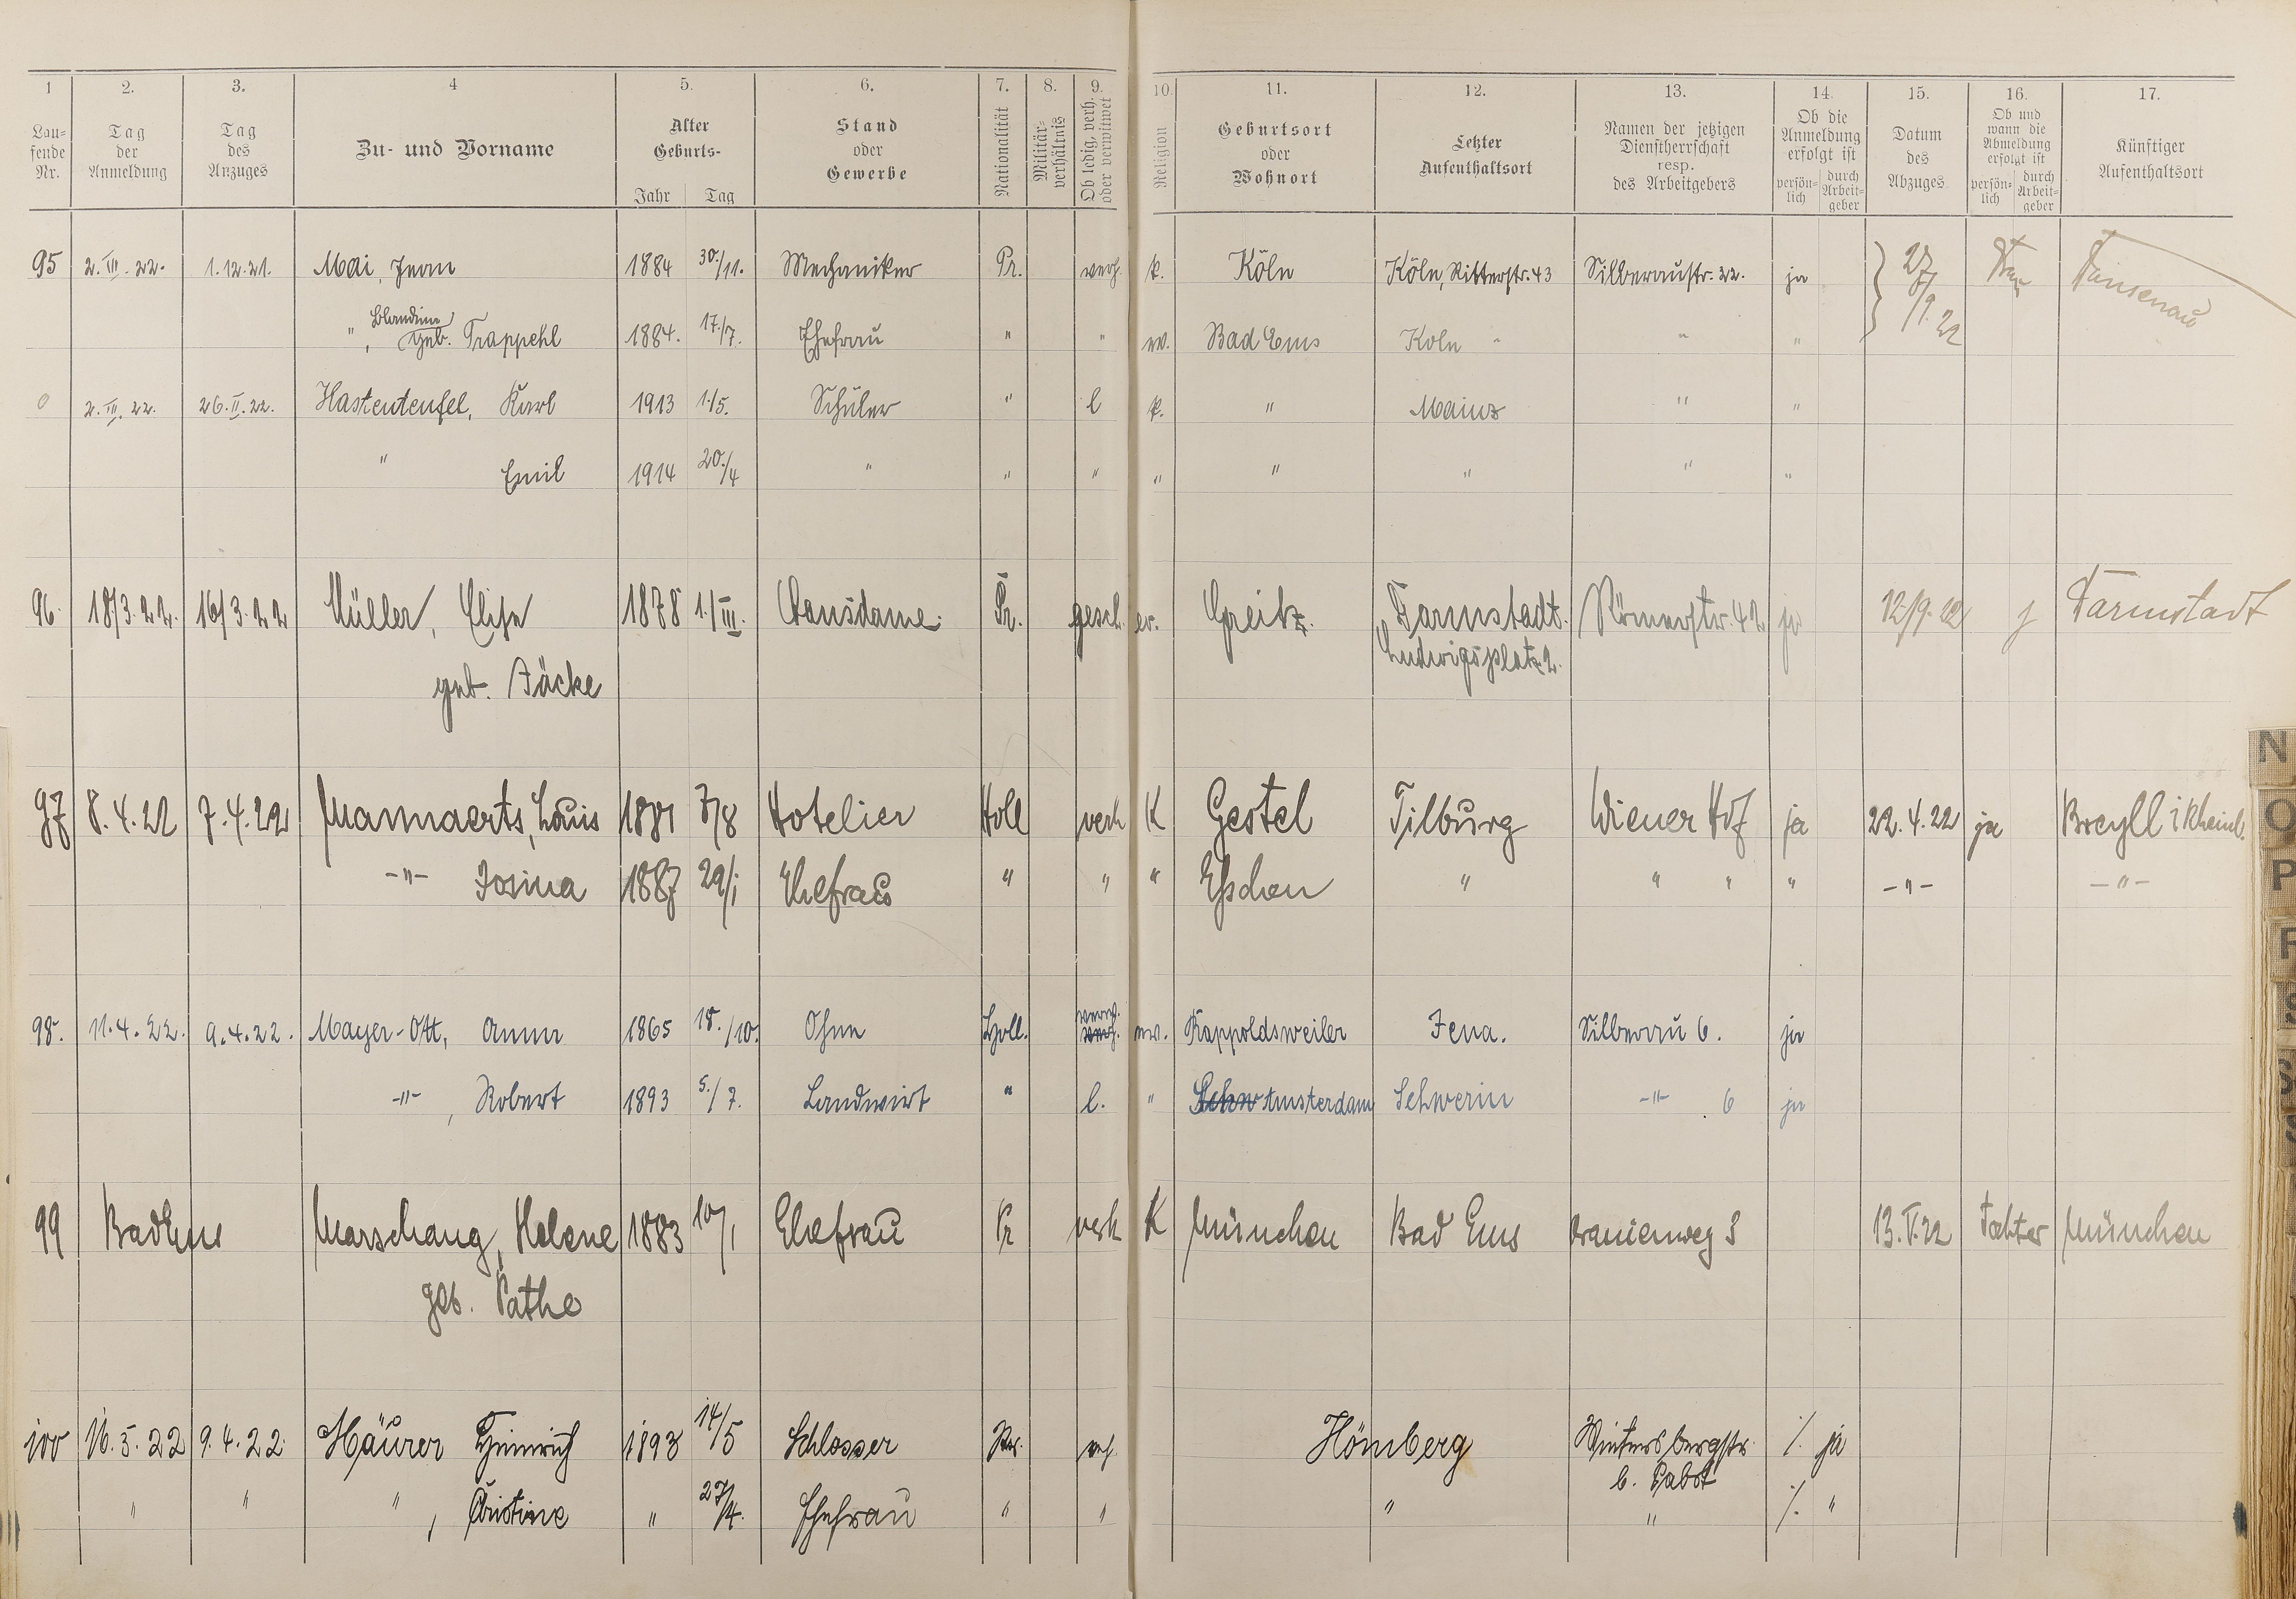 1 2. 3. 4 5. 6. 7. 8. 9. 10. 11. 12. 13. 14. 15. 16. 17.
Lau-
fende
Nr.
Tag
der
Anmeldung
Tag
des
Anzuges
Zu- und Vorname
Alter
Geburts-
Jahr Tag
Stand
oder
Gewerbe
Nationalität
Militär-
verhältnis
Ob ledig, verh.
oder verwitwet
Religion
Geburtsort
oder
Wohnort
Letzter
Aufenthaltsort
Namen der jetzigen
Dienstherrschaft
resp.
des Arbeitgebers
Ob die
Anmeldung
erfolgt ist
persön-
lich
durch
Arbeit-
geber
Datum
des
Abzuges
Ob und
wann die
Abmeldung
erfolgt ist
persön-
lich
durch
Arbeit-
geber
Künftiger
Aufenthaltsort
95 2. III. 22. 1.12.21. Mai, Jean 1884 30./11. Mechaniker Pr. verh. k. Köln Köln, Ritterstr. 43 Silberaustr. 22. ja 27/9.22 Dausenau
" , Blandine geb. Trappehl 1884. 17./7. Ehefrau " " ev. Bad Ems Köln " " "
2. III. 22. 26. II. 22. Hastenteufel, Karl 1913 1./5. Schüler " l k. " Mainz " "
" Emil 1914 20./4 " " " " " " " "
96. 18/3.22. 16/3.22 Müller, Elise 1878 1./III. Hausdame. Pr. gesch. ev. Greitz. Darmstadt. Römerstr. 42 ja 12/9.22 j Darmstadt
Ludwigsplatz 2.
geb. Jäcke
97 8.4.22 7.4.22 Mannaerts, Louis 1881 7/8 Hotelier Holl verh K Gestel Tilburg Wiener Hof ja 22.4.22 ja Breyll i Rheinl.
-"- Josina 1887 29/1 Ehefrau " " " Eschen " " " " -"- -"-
98. 11.4.22. 9.4.22. Mayer-Ott, Anna 1865 18./10. Ohne Holl. verw. ev. Rappoldsweiler Jena. Silberau 6. ja
-"- , Robert 1893 5./7. Landwirt " l. " Schw Amsterdam Schwerin -"- 6 ja
99 Bad Ems Marschang, Helene 1883 10/1 Ehefrau Pr verh K München Bad Ems Oranienweg 3 13.V.22 Tochter München
geb. Pathe
100 16.5.22 9.4.22 Häurer Heinrich 1893 14/5 Schlosser Pr. vh. Hömberg Wintersbergstr. /. ja
b. Pabst
" " " , Christine " 27/4. Ehefrau " " " " /. "
N
O
P
R
S
S